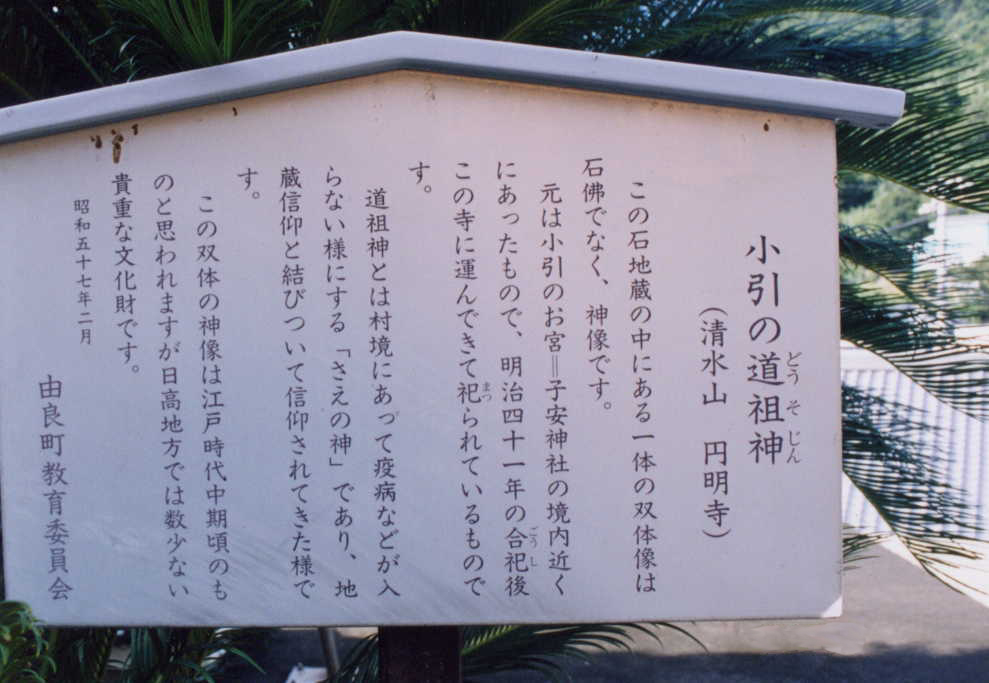 小引の道祖神
どうそじん
（清水山　円明寺）
この石地蔵の中にある一体の双体像は
石佛でなく、神像です。
元は小引のお宮＝子安神社の境内近く
にあったもので、明治四十一年の合祀後
ごうし
この寺に運んできて祀られているもので
まつ
す。
道祖神とは村境にあって疫病などが入
らない様にする「さえの神」であり、地
蔵信仰と結びついて信仰されてきた様で
す。
この双体の神像は江戸時代中期頃のも
のと思われますが日高地方では数少ない
貴重な文化財です。
昭和五十七年二月
由良町教育委員会